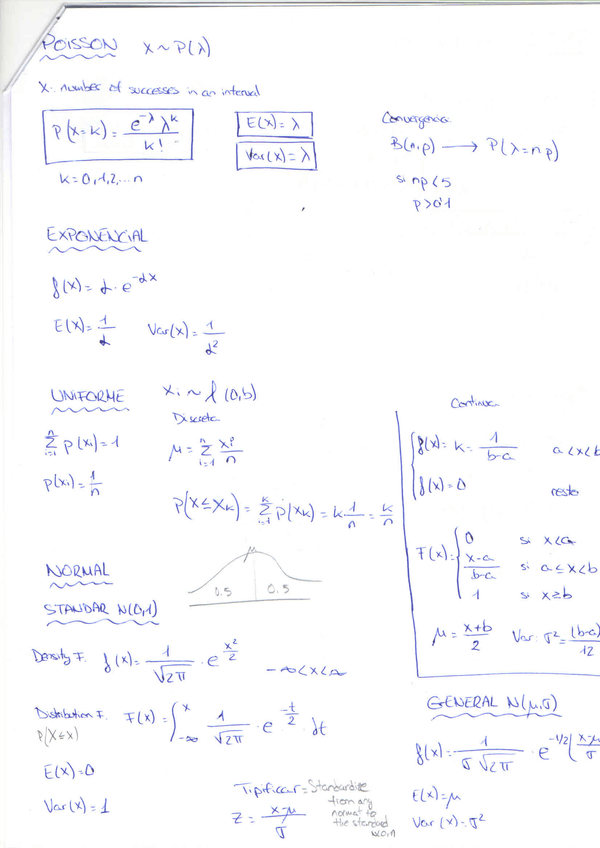 POISSON X ~ P(λ)
X = number of successes in an interval
P(X=k) = e^-λ λ^k / k!
k = 0,1,2,...n
E(X) = λ
Var(X) = λ
Convergencia
B(n,p) → P(λ=np)
si np<5
p>0'1
EXPONENCIAL
f(x) = α · e^-αx
E(X) = 1/α Var(X) = 1/α²
UNIFORME Xi ~ f (0,b)
Discreta
n Σ i=1 p(xi) = 1 μ = n Σ i=1 xi/n
p(xi) = 1/n
P(X≤Xk) = k Σ i=1 p(xk) = k 1/n = k/n
Continua
f(x) = k = 1/b-a a<x<b
f(x) = 0 resto
F(x) = 0 si x<a
x-a/b-a si a≤x<b
1 si x≥b
μ = x+b/2 Var: σ² = (b-a)/12
NORMAL
μ
0.5 0.5
STANDAR N(0,1)
Density F. f(x) = 1/√2π · e^x²/2 -∞<x<∞
Distribution F. F(x) = ∫ x -∞ 1/√2π · e^-t/2 · dt
P(X≤x)
E(X) = 0
Var(X) = 1
Tipificar = Standardize
from any
normal to
the standard
N(0,1)
Z = x-μ/σ
GENERAL N(μ,σ)
f(x) = 1/σ√2π · e^-1/2(x-μ/σ
E(X) = μ
Var(X) = σ²